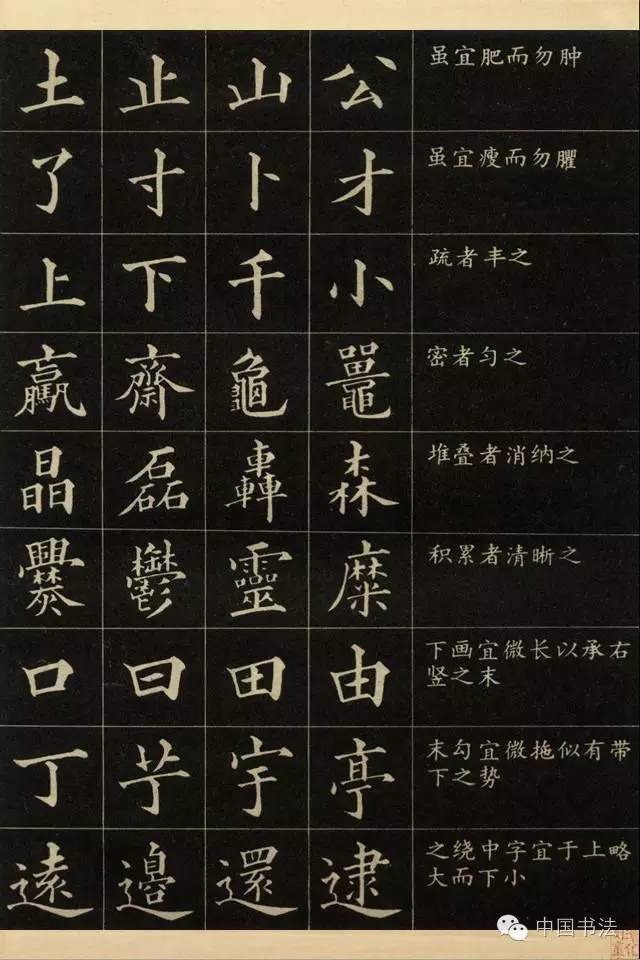 土 止 山 公 虽宜肥而勿肿
了 寸 卜 才 虽宜瘦而勿臞
上 下 千 小 疏者丰之
齋 龜 密者匀之
晶 磊 轟 森 堆叠者消纳之
爨 鬱 靈 糜 积累者清晰之
口 曰 田 由 下画宜微长以承右
竖之末
丁 宇 亭 末勾宜微拖似有带
下之势
遠 邉 還 逮 之绕中字宜于上略
大而下小
中国书法